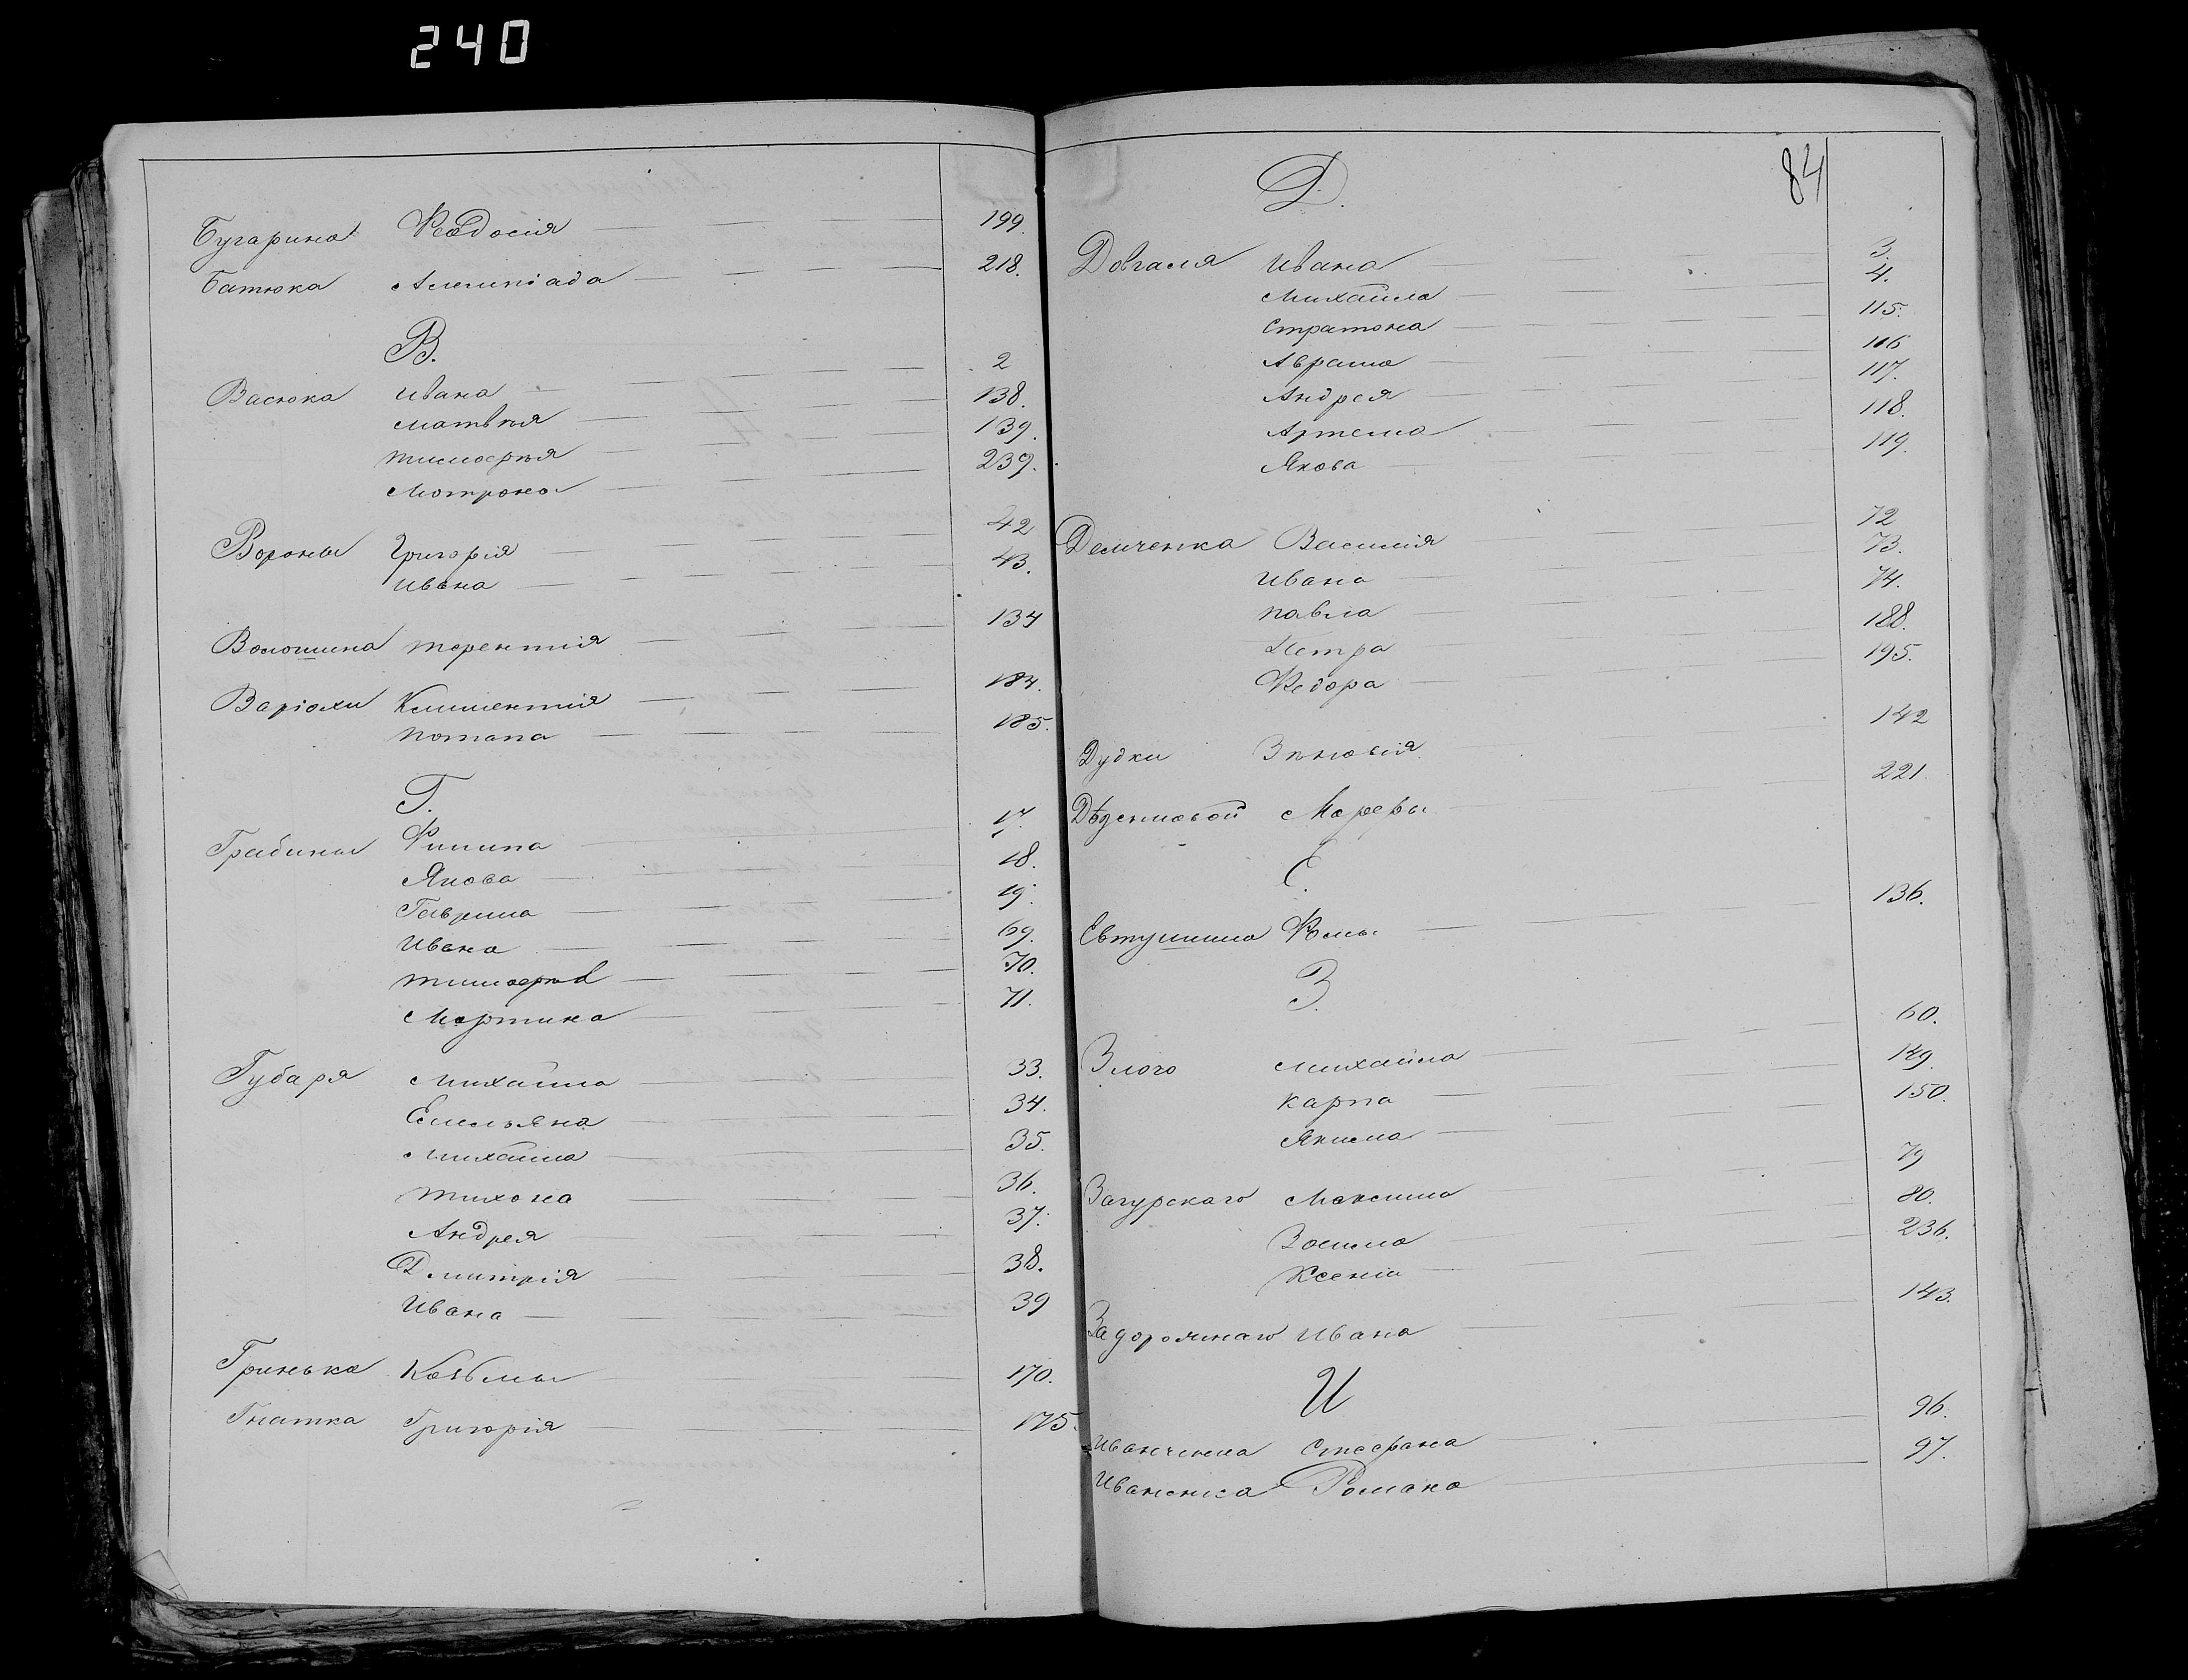 240
Бугарина Ѳеодосія 199.
Батюка Алимпіада 218.
В.
Васюка Ивана 2
Матвѣя 138.
Тимоѳѣя 139.
Мотрона 239.
Вороны Григорія 42
Ивана 43.
Волошина Терентія 134
Варіохи Климентія 184.
Потапа 185.
Г.
Грабины Филипа 17.
Якова 18.
Гаврила 19.
Ивана 69.
Тимофѣя 70.
Мартина 71.
Губаря Михайла 33.
Емельяна 34.
Михайла 35.
Тихона 36.
Андрея 37.
Дмитрія 38.
Ивана 39
Гринька Козьмы 170.
Гнатка Григорія 175.
84
Д.
Довгаля Ивана 3.
Михайла 4.
Стратона 115.
Аврама 116
Андрея 117.
Артема 118.
Якова 119.
Демченка Василія 72
Ивана 73.
Павла 74.
Петра 188.
Ѳедора 195.
Дудки Зѣновія 142
Марфы 221.
Е.
Евтушина Ѳомы 136.
З.
Злого Михайла 60.
Карпа 149.
Якима 150.
Загурскаго Максима 79
Зосима 80.
Ксенія 236.
Задорожнаго Ивана 143.
И
Иванченка Стефана 96.
Иваненка Романа 97.